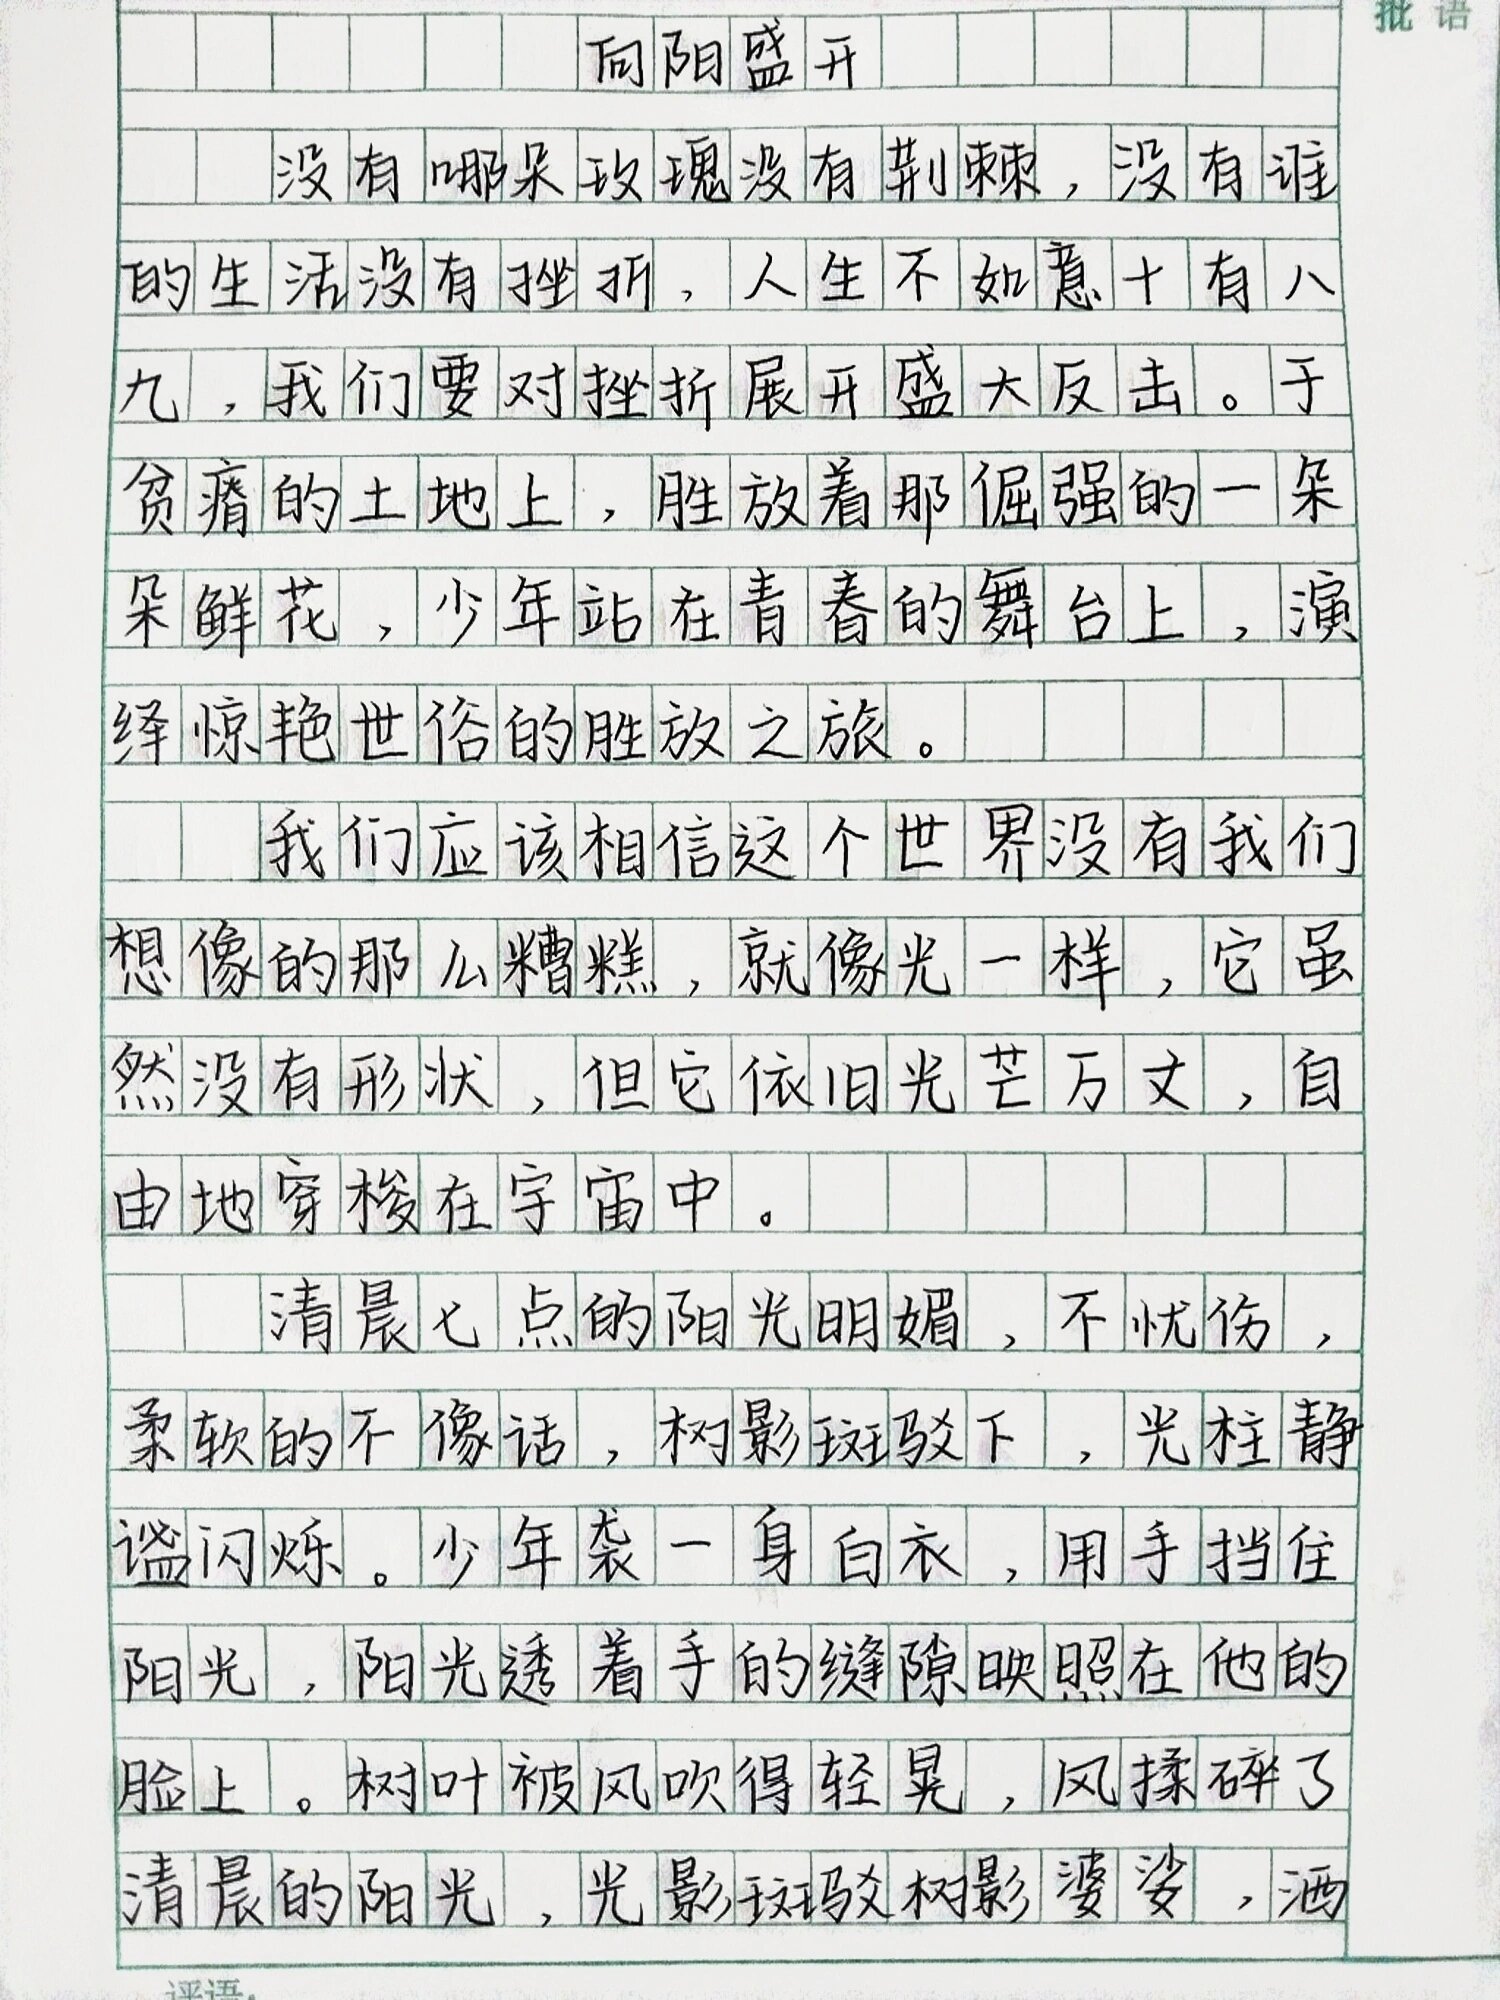 批语
向阳盛开
没有哪朵玫瑰没有荆棘，没有谁
的生活没有挫折，人生不如意十有八
九，我们要对挫折展开盛大反击。于
贫瘠的土地上，胜放着那倔强的一朵
朵鲜花，少年站在青春的舞台上，演
绎惊艳世俗的胜放之旅。
我们应该相信这个世界没有我们
想像的那么糟糕，就像光一样，它虽
然没有形状，但它依旧光芒万丈，自
由地穿梭在宇宙中。
清晨七点的阳光明媚，不忧伤，
柔软的不像话，树影斑驳下，光柱静
谧闪烁。少年袭一身白衣，用手挡住
阳光，阳光透着手的缝隙映照在他的
脸上。树叶被风吹得轻晃，风揉碎了
清晨的阳光，光影斑驳树影婆娑，洒
评语：